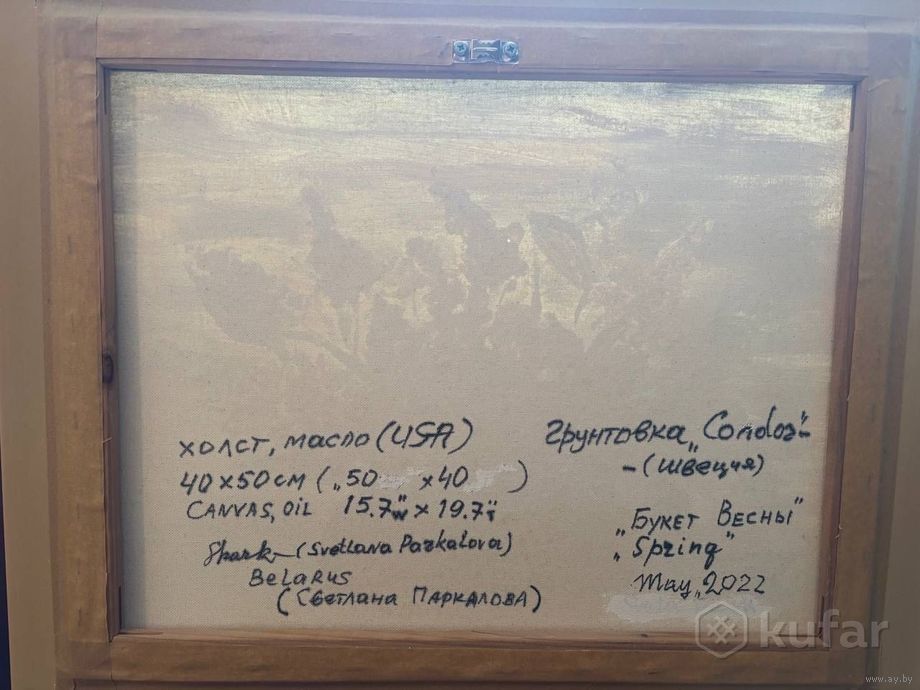 холст, масло (USA)
40x50см („50 x40 )
CANVAS, OIL 15.7" x 19.7"
Spark (Svetlana Parkalova)
BeLaRus
(Светлана Паркалова)
Грунтовка „Condor"-
-(Швеция)
„Букет Весны"
„Spring"
May, 2022
kufar
www.ay.by